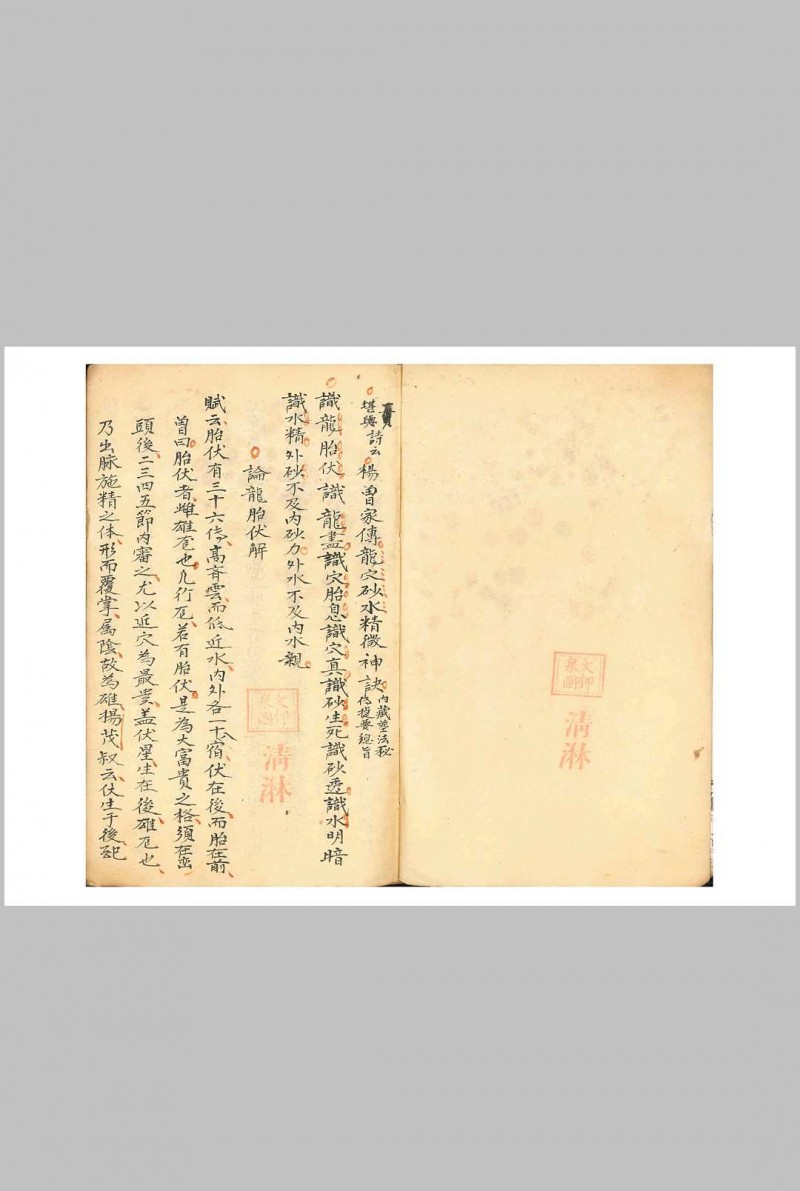 堪輿詩云楊曾家傳龍穴砂水精微神訣內藏塋法秘傳提要總旨
識龍胎伏識龍盡識穴胎息識穴真識砂生死識砂透識水明暗
識水精外砂不及內砂力外水不及內水親
論龍胎伏解
賦云胎伏有三十六傳高齊雲而低近水內外各一十八宿伏在後而胎在前
曾曰胎伏者雌雄也凡行若有胎伏是為大富貴之格須在巒
頭後二三四五節內審之尤以近穴為最貴蓋伏星生在後雄也
乃出脉施精之体形而覆掌属陰故為雄楊茂叔云伏生于後
文印泉圖
清淋
文印泉圖
清淋